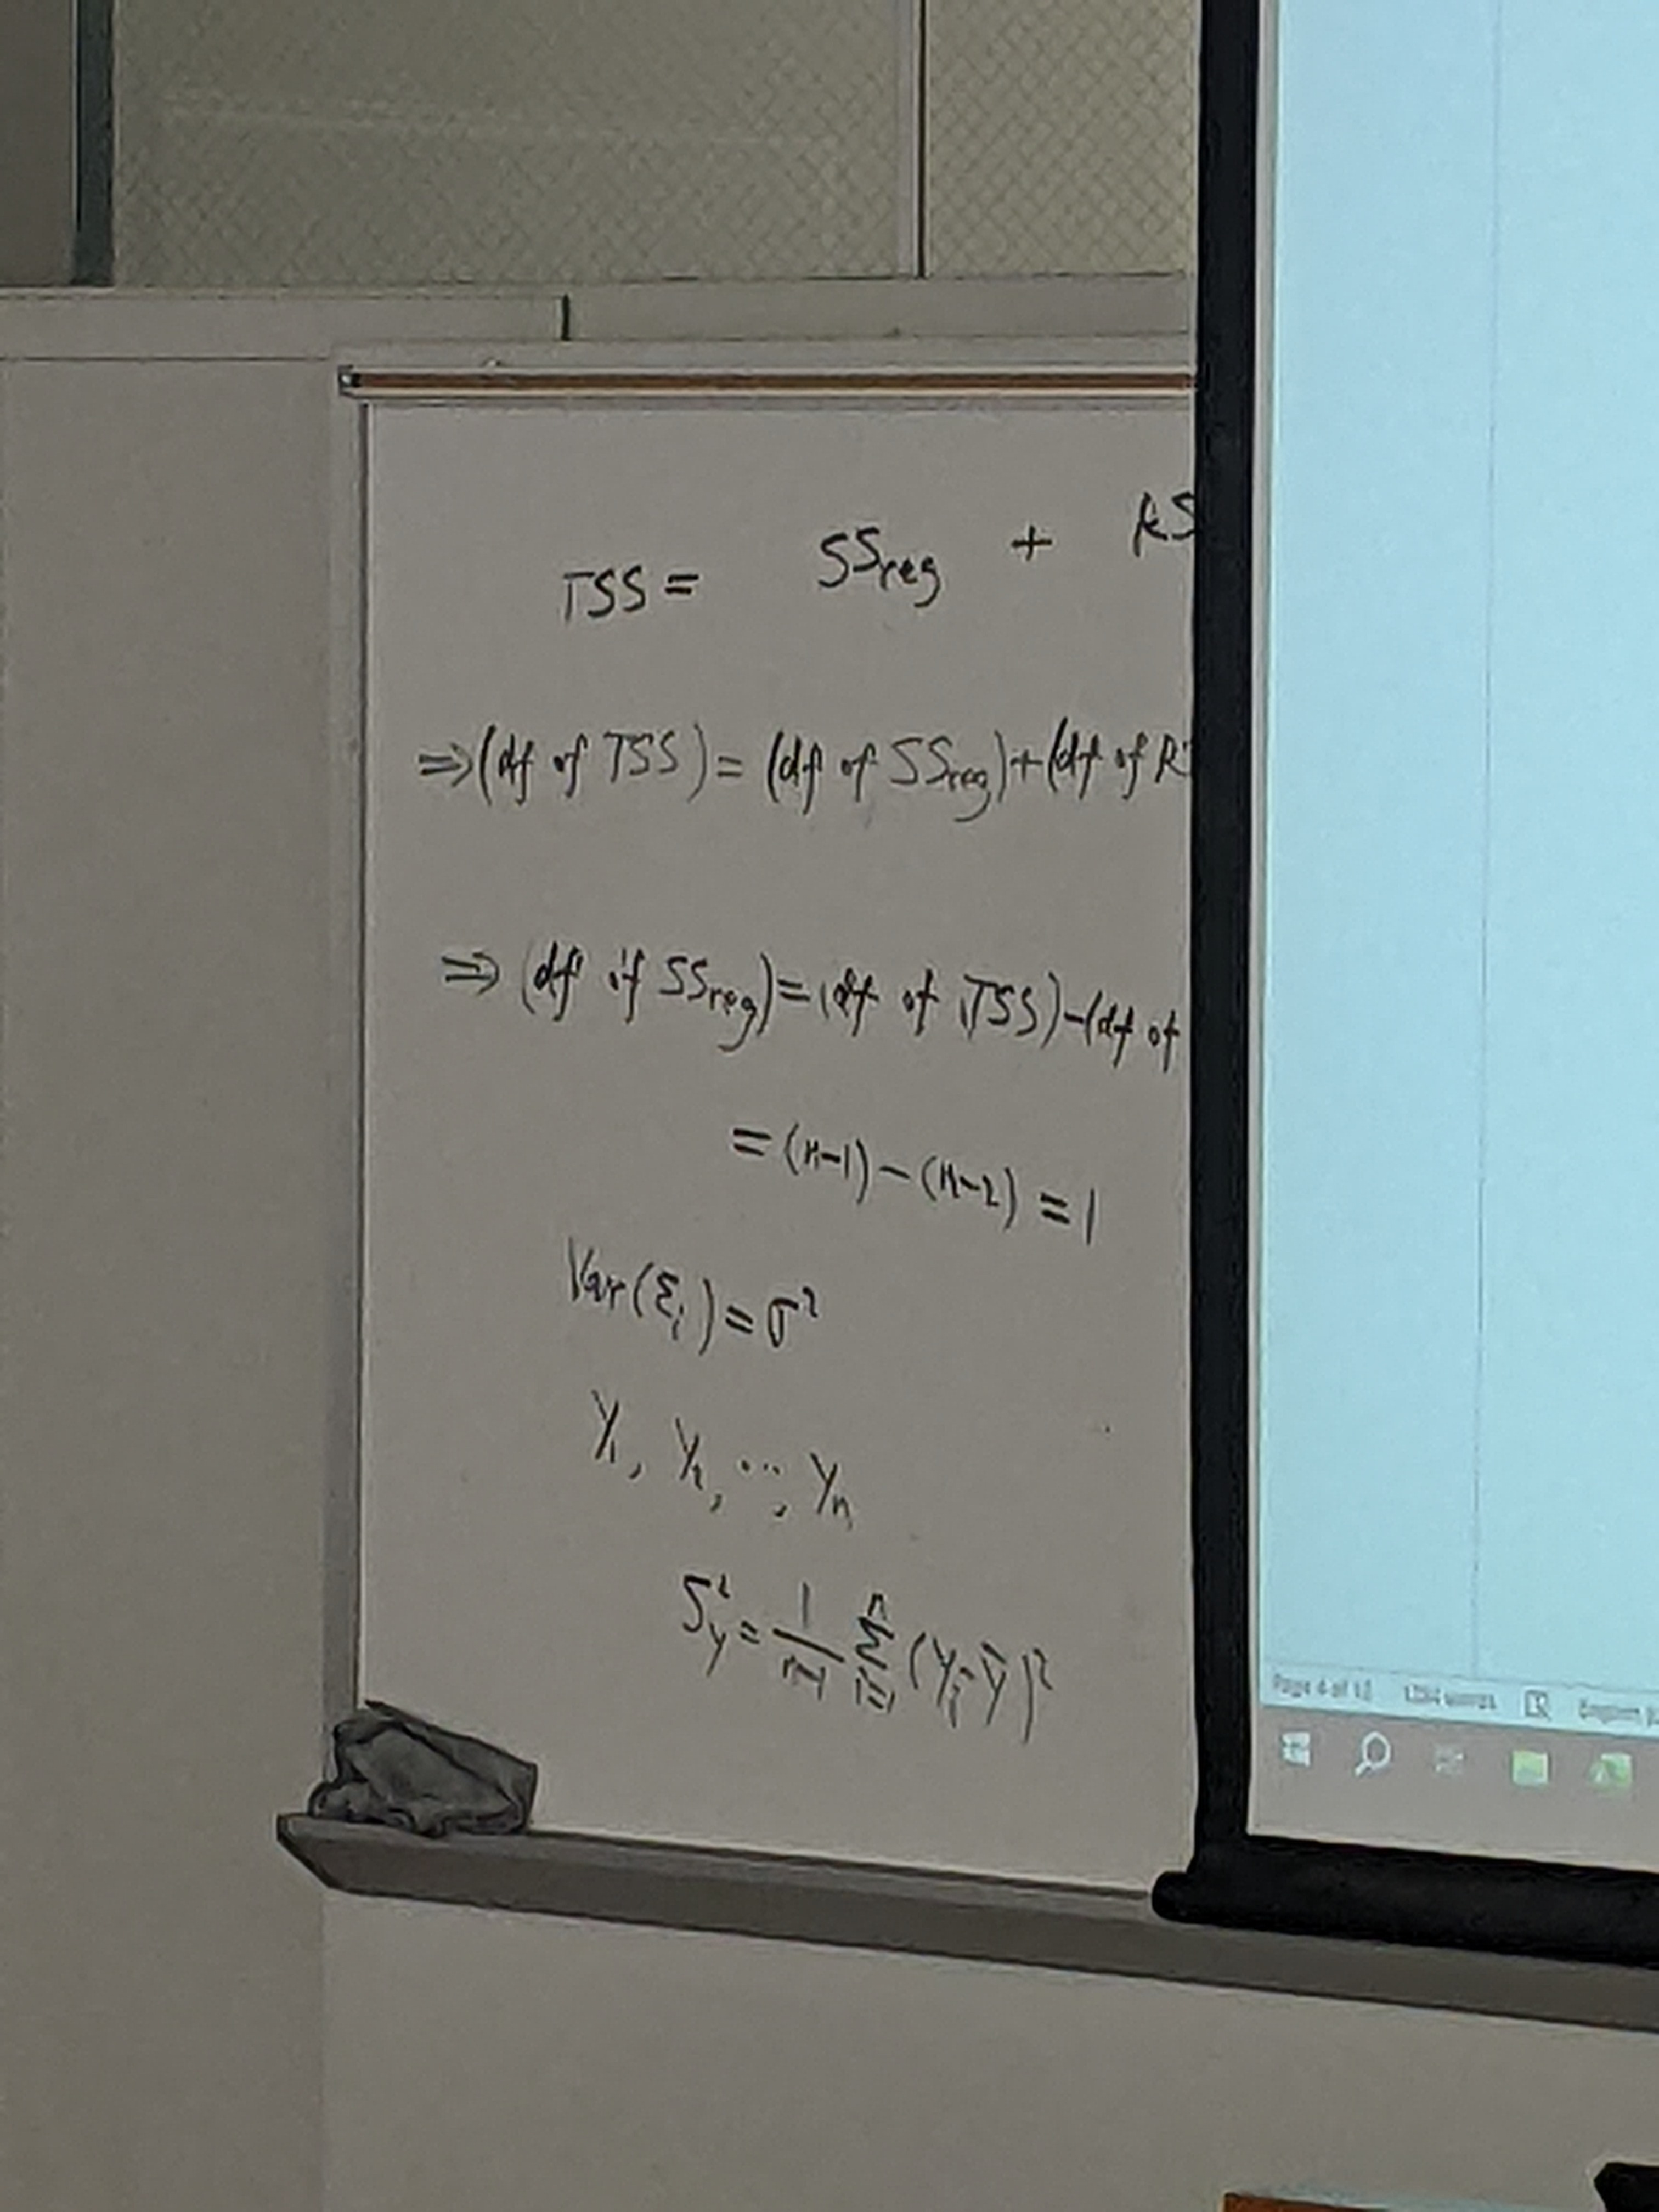 TSS = SSreg + RS
⇒ (df of TSS) = (df of SSreg) + (df of RS
⇒ (df of SSreg) = (df of TSS) - (df of
= (n-1) - (n-2) = 1
Var(εi) = σ²
Y₁, Y₂, ..., Yn
S²y = 1/(n-1) Σ(i=1 to n) (Yi - Ȳ)²
Page 4 of 12 words